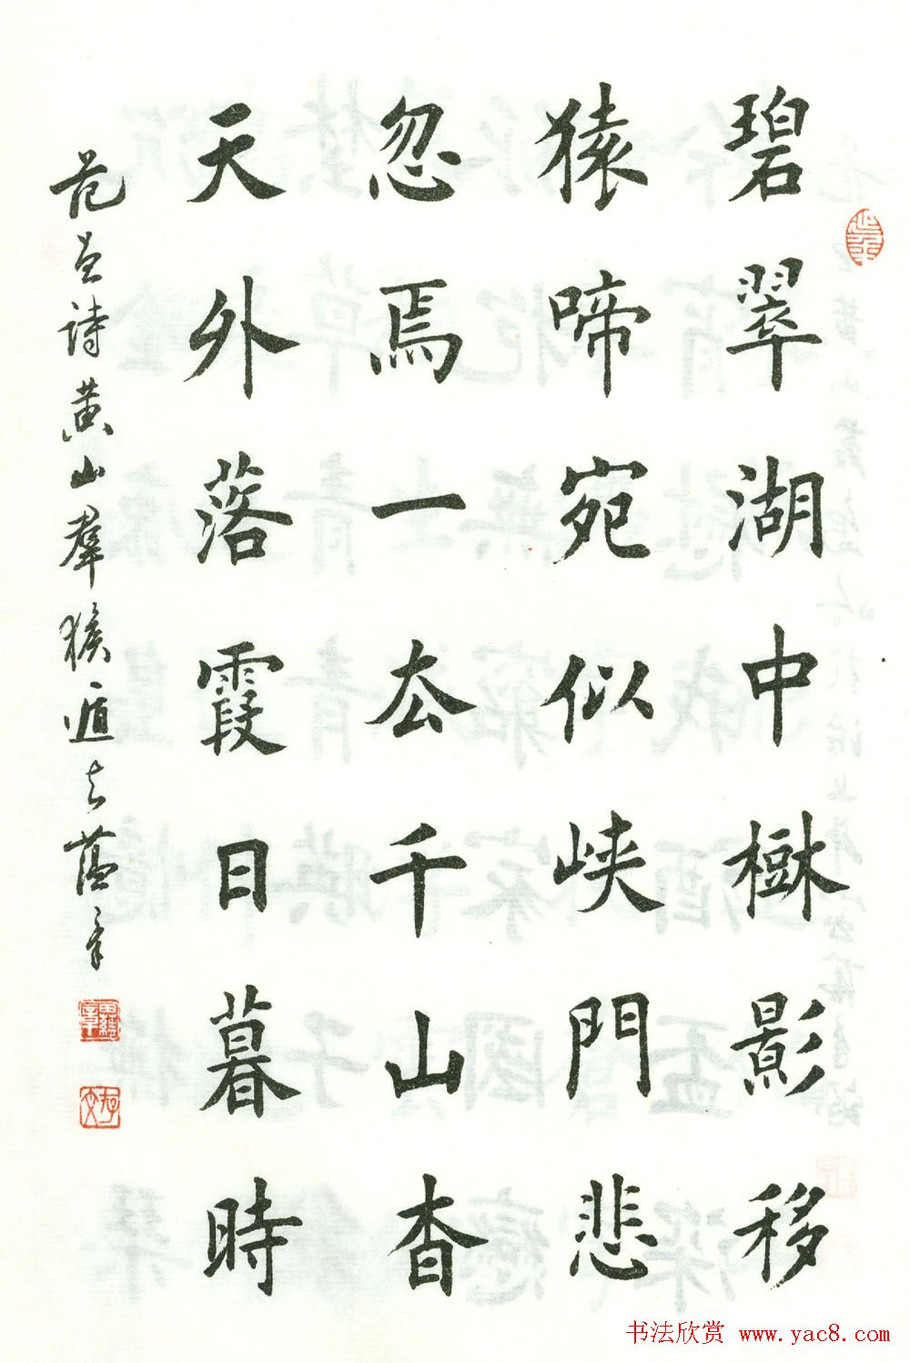 碧翠湖中樹影移
猿啼宛似峡門悲
忽焉一厺千山杳
天外落霞日暮時
范曾詩黄山羣猴遁去
书法欣赏 www.yac8.com